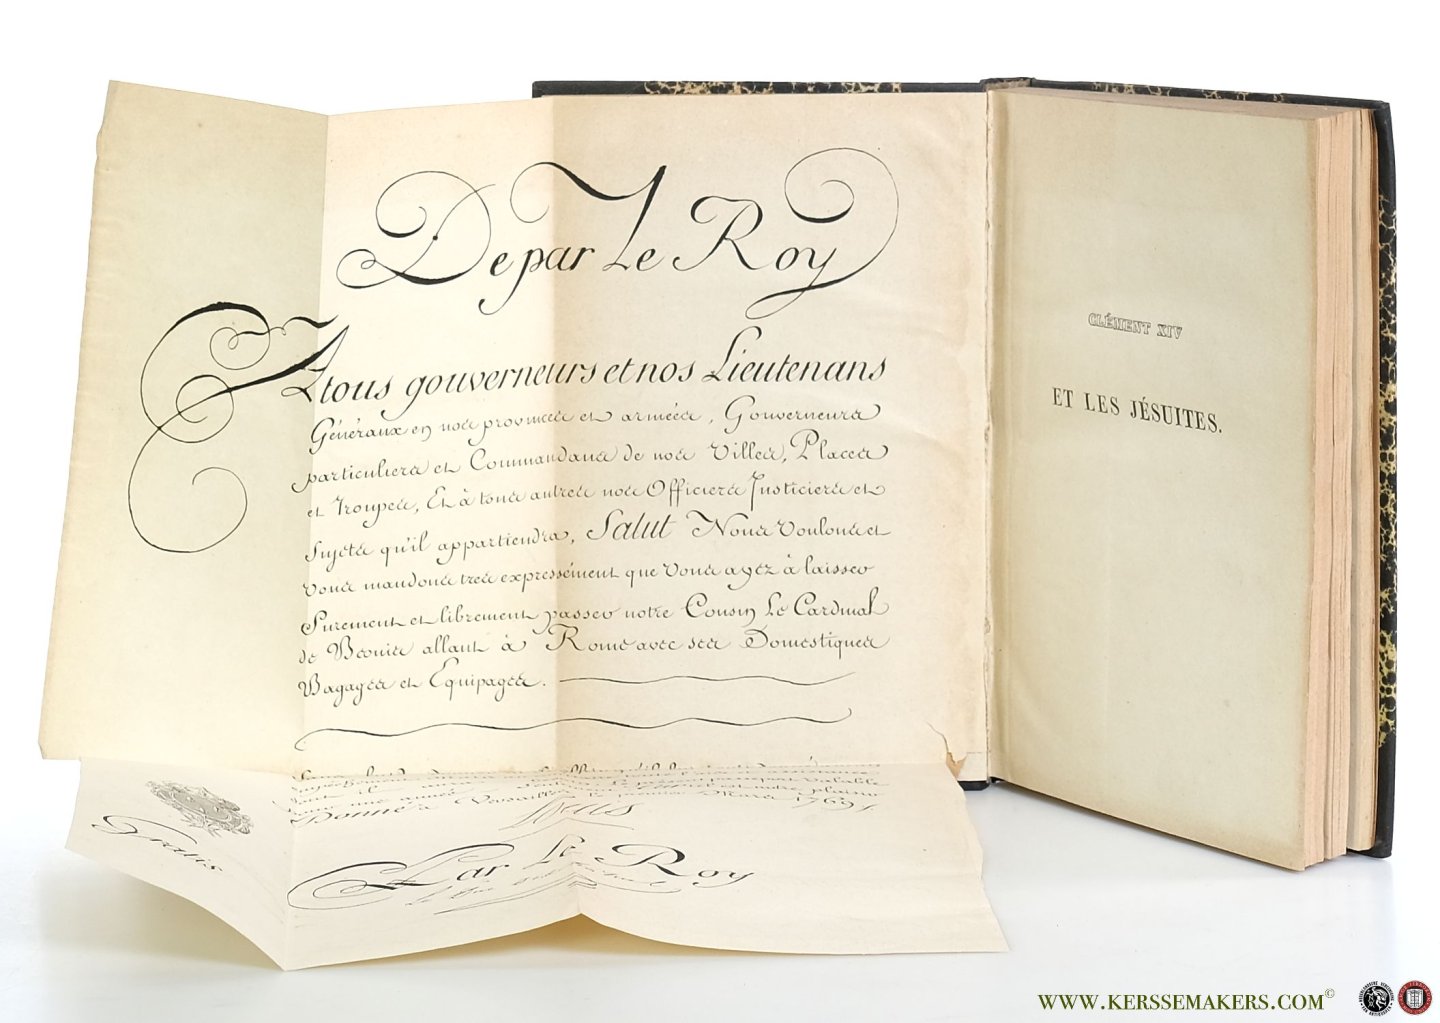 De par Le Roy
A tous gouverneurs et nos Lieutenans
Généraux en nos provinces et armées, Gouverneurs
particuliers et Commandans de nos Villes, Places
et Troupes, Et à tous autres nos Officiers Justiciers et
Sujets qu'il appartiendra, Salut Nous voulons et
vous mandons tres expressément que vous ayez à laisser
Surement et librement passer notre Cousin Le Cardinal
de Bernis allant à Rome avec ses Domestiques
Bagages et Equipages.
Donné à Versailles Mars 1769
Louis
Par Le Roy
Gratis
CLÉMENT XIV
ET LES JÉSUITES.
WWW.KERSSEMAKERS.COM©